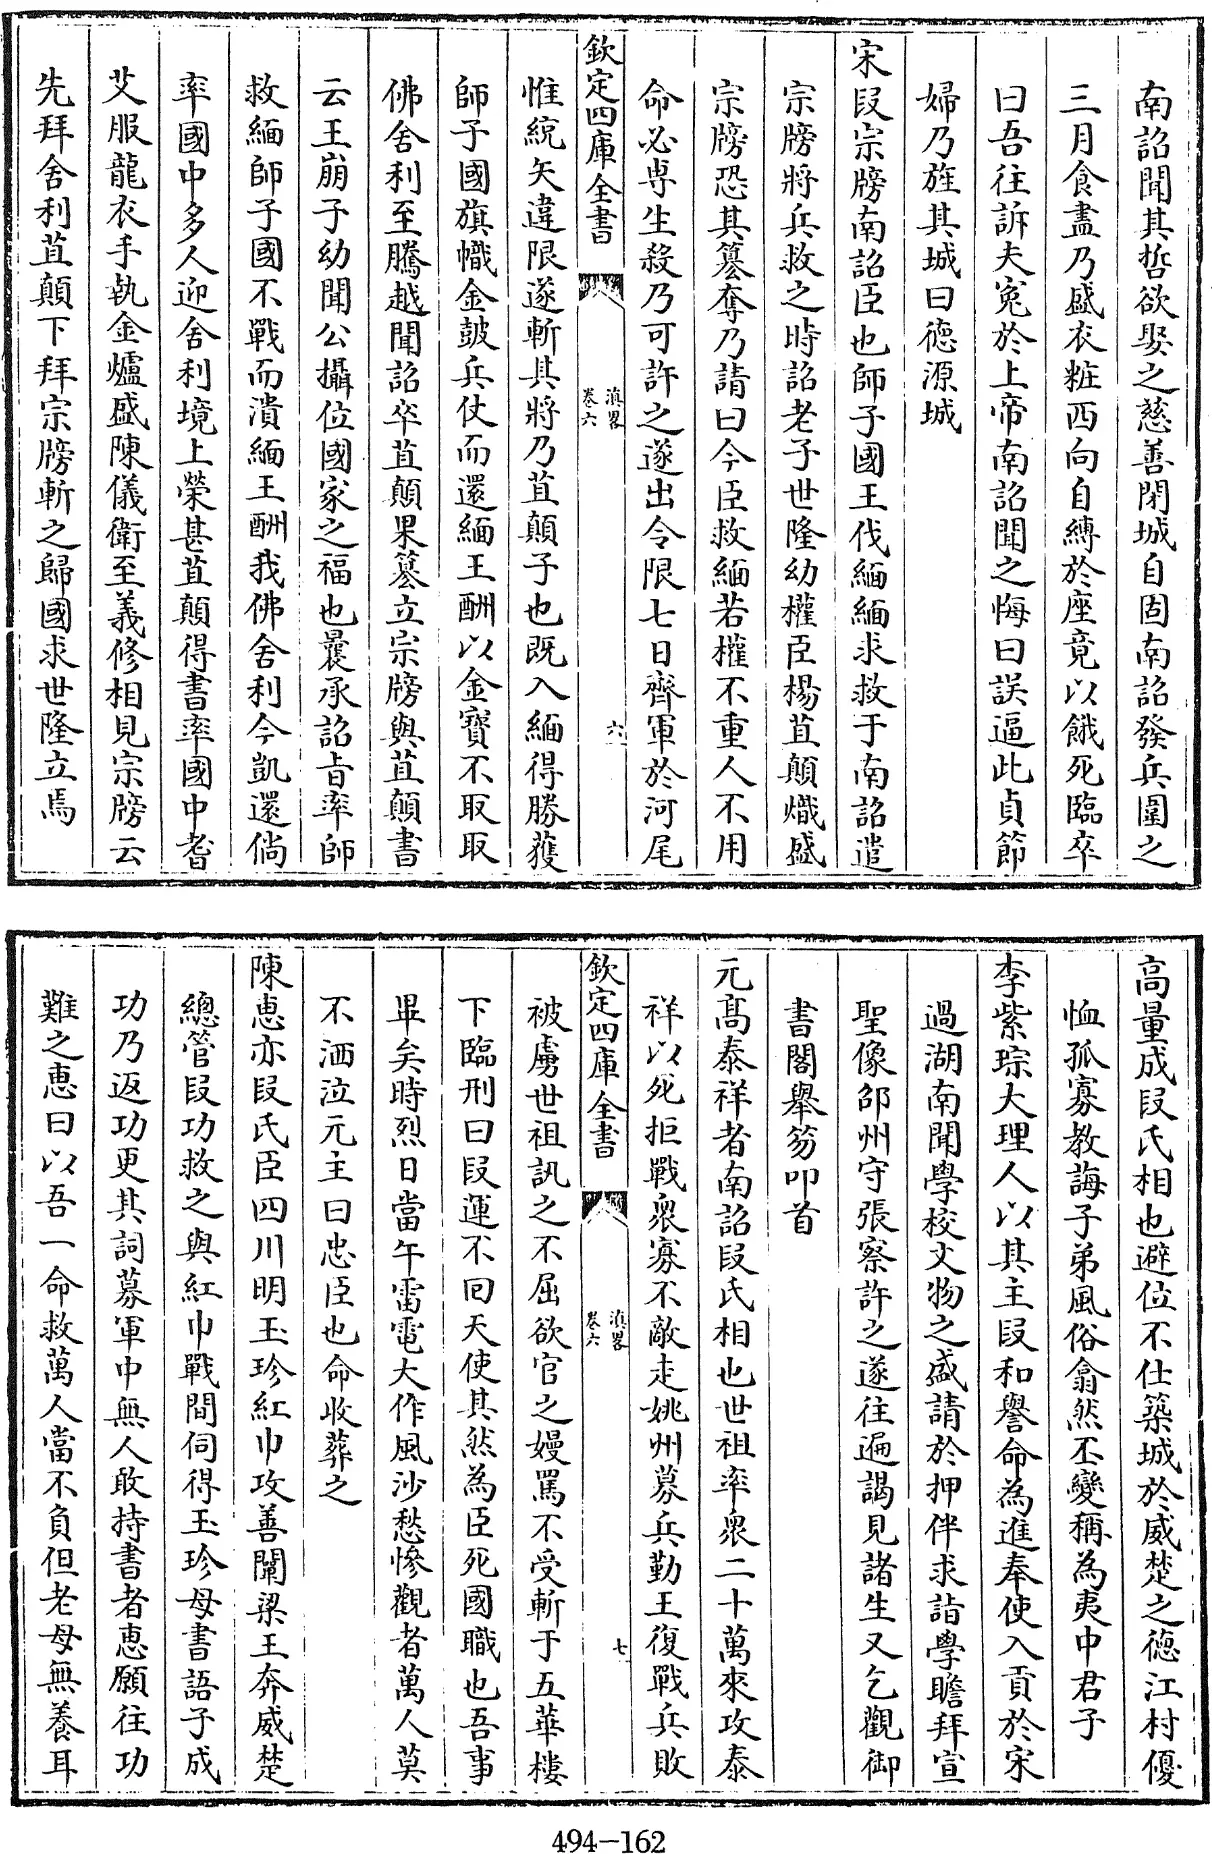 南詔聞其哲欲娶之慈善閉城自固南詔發兵圍之
三月食盡乃盛衣粧西向自縛於座竟以餓死臨卒
曰吾往訴夫寃於上帝南詔聞之悔曰誤逼此貞節
婦乃旌其城曰德源城
宋段宗牓南詔臣也師子國王伐緬緬求救于南詔遣
宗牓將兵救之時詔老子世隆幼權臣楊苴顛熾盛
宗牓恐其簒奪乃請曰今臣救緬若權不重人不用
命必専生殺乃可許之遂出令限七日齊軍於河尾
欽定四庫全書
滇畧
卷六
六
惟統矢違限遂斬其將乃苴顛子也既入緬得勝獲
師子國旗幟金鼓兵仗而還緬王酬以金寶不取取
佛舍利至騰越聞詔卒苴顛果簒立宗牓與苴顛書
云王崩子幼聞公攝位國家之福也曩承詔旨率師
救緬師子國不戰而潰緬王酬我佛舍利今凱還倘
率國中多人迎舍利境上榮甚苴顛得書率國中耆
艾服龍衣手執金爐盛陳儀衛至義修相見宗牓云
先拜舍利苴顛下拜宗牓斬之歸國求世隆立焉
高量成段氏相也避位不仕築城於威楚之德江村優
恤孤寡教誨子弟風俗翕然丕變稱為夷中君子
李紫琮大理人以其主段和譽命為進奉使入貢於宋
過湖南聞學校文物之盛請於押伴求詣學瞻拜宣
聖像邵州守張察許之遂往遍謁見諸生又乞觀御
書閣舉笏叩首
元高泰祥者南詔段氏相也世祖率衆二十萬來攻泰
祥以死拒戰衆寡不敵走姚州募兵勤王復戰兵敗
欽定四庫全書
滇畧
卷六
七
被虜世祖訊之不屈欲官之嫚罵不受斬于五華樓
下臨刑曰段運不回天使其然為臣死國職也吾事
畢矣時烈日當午雷電大作風沙愁慘觀者萬人莫
不洒泣元主曰忠臣也命收葬之
陳惠亦段氏臣四川明玉珍紅巾攻善闡梁王奔威楚
總管段功救之與紅巾戰間伺得玉珍母書語子成
功乃返功更其詞募軍中無人敢持書者惠願往功
難之惠曰以吾一命救萬人當不負但老母無養耳
494-162